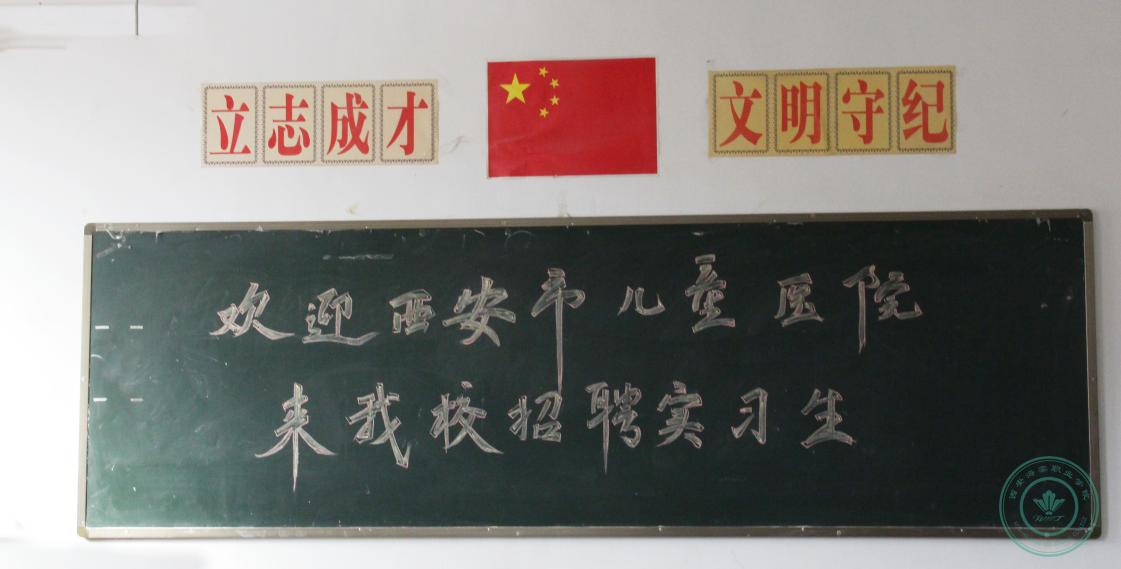 立志成才
文明守纪
欢迎西安市儿童医院
来我校招聘实习生